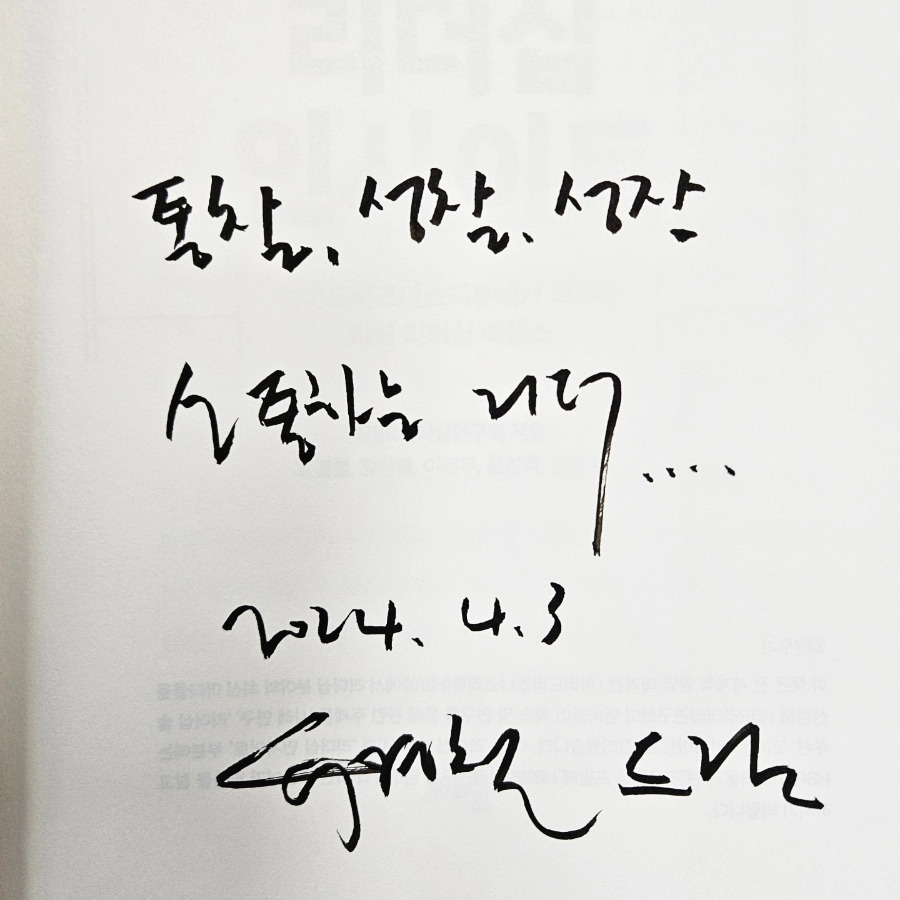 통찰, 성찰, 성장
소통하는 리더....
2024. 4. 3
드림